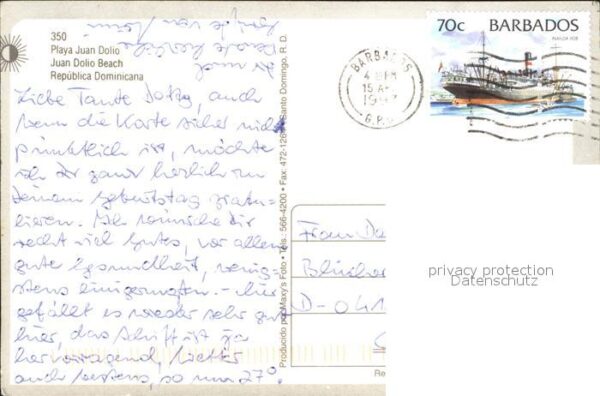 350
Playa Juan Dolio
Juan Dolio Beach
República Dominicana
Liebe Tante Dotty, auch
wenn die Karte sicher nicht
pünktlich ist, möchte
ich dir ganz herzlich zu
Deinem Geburtstag gratu-
lieren. Ich wünsche dir
recht viel Gutes, vor allem
gute Gesundheit, wenig-
stens einigermaßen. – hier
gefällt es wieder sehr gut
hier, das Schiff ist ja
hervorragend, Wetter
auch bestens, so um 27°.
Producido por Maxy's Foto • Tels.: 566-4200 • Fax: 472-126 Santo Domingo, R. D.
70c BARBADOS
BARBADOS
15 AP
1997
G.P.O.
Frau Do
Blücher
D-041
privacy protection
Datenschutz
Re